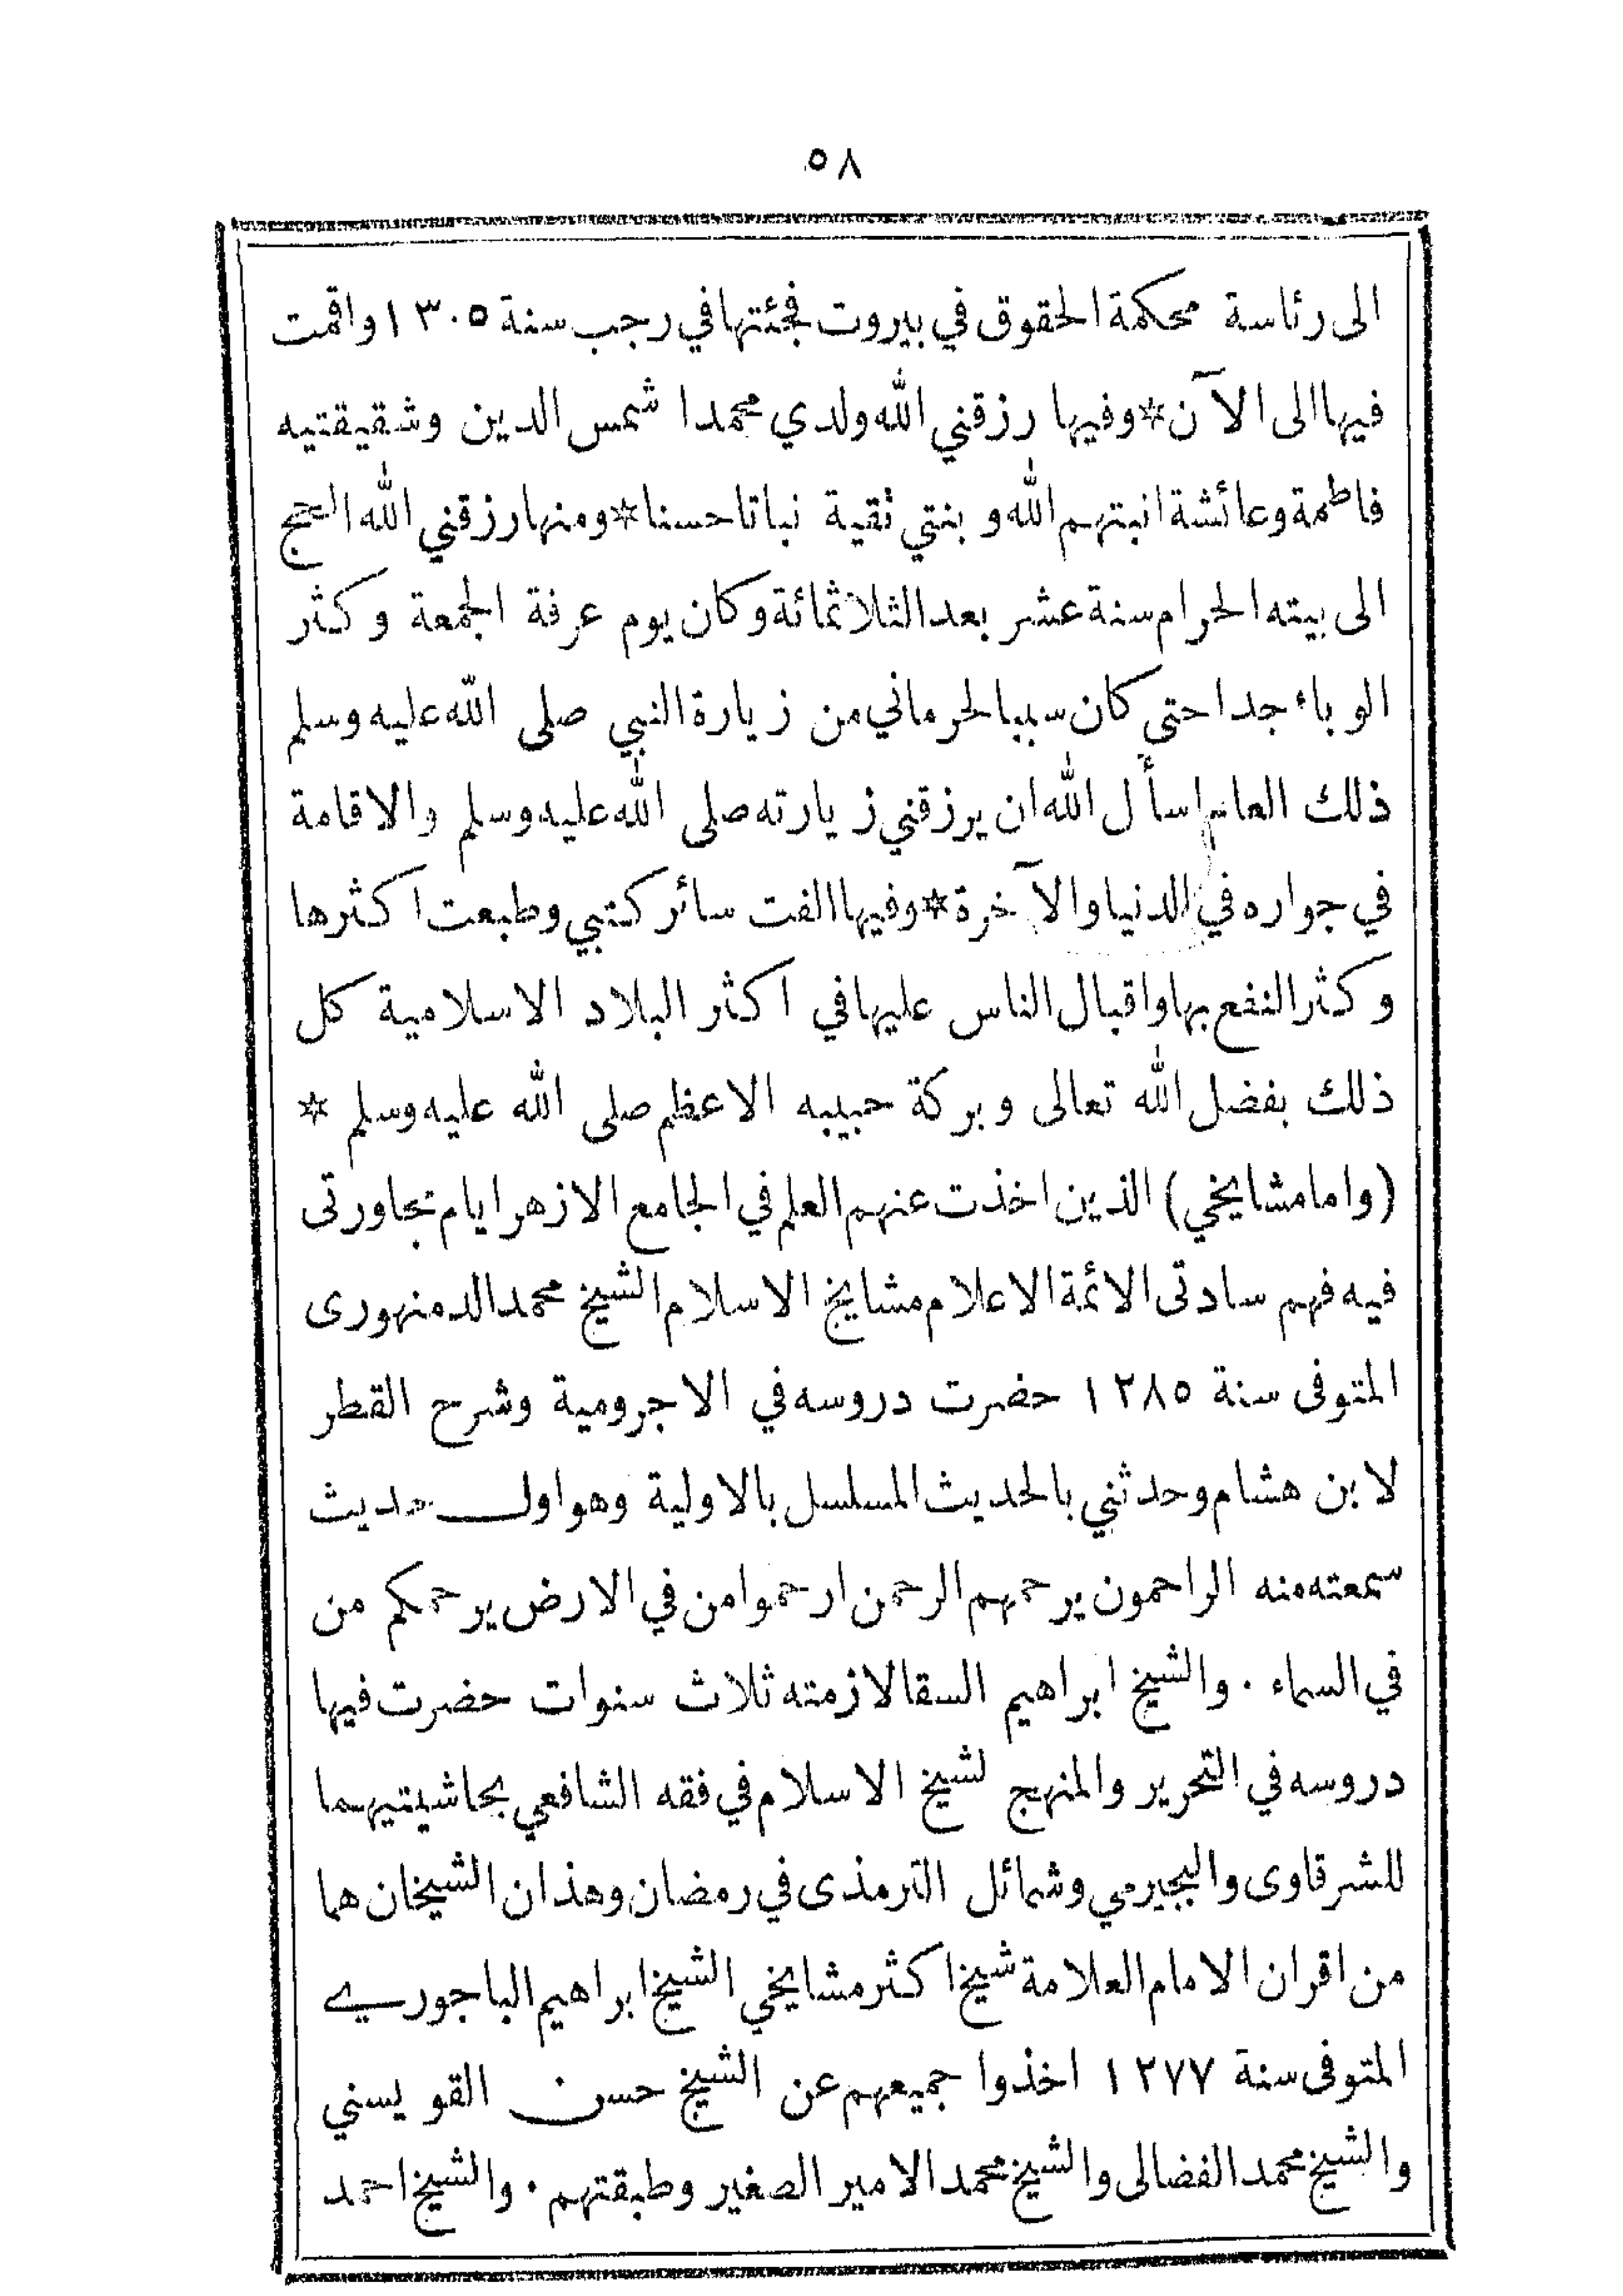 ٥٨
الى رئاسة محكمة الحقوق في بيروت فجئتها في رجب سنة ١٣٠٥ واقمت
فيها الى الآن * وفيها رزقني الله ولدي محمدا شمس الدين وشقيقتيه
فاطمة وعائشة انبتهم الله و بنتي نقية نباتا حسنا * ومنها رزقني الله الحج
الى بيته الحرام سنة عشر بعد الثلاثمائة وكان يوم عرفة الجمعة وكثر
الوباء جدا حتى كان سببا لحرماني من زيارة النبي صلى الله عليه وسلم
ذلك العام اسأل الله ان يرزقني زيارته صلى الله عليه وسلم والاقامة
في جواره في الدنيا والآخرة * وفيها الفت سائر كتبي وطبعت اكثرها
وكثر النفع بها واقبال الناس عليها في اكثر البلاد الاسلامية كل
ذلك بفضل الله تعالى وبركة حبيبه الاعظم صلى الله عليه وسلم *
(واما مشايخي) الذين اخذت عنهم العلم في الجامع الازهر ايام مجاورتى
فيه فهم سادتى الائمة الاعلام مشايخ الاسلام الشيخ محمد الدمنهورى
المتوفى سنة ١٢٨٥ حضرت دروسه في الاجرومية وشرح القطر
لابن هشام وحدثني بالحديث المسلسل بالاولية وهو اول حديث
سمعته منه الراحمون يرحمهم الرحمن ارحموا من في الارض يرحمكم من
في السماء . والشيخ ابراهيم السقا لازمته ثلاث سنوات حضرت فيها
دروسه في التحرير والمنهج لشيخ الاسلام في فقه الشافعي بحاشيتيهما
للشرقاوى والبجيرمي وشمائل الترمذى في رمضان وهذان الشيخان هما
من اقران الامام العلامة شيخ اكثر مشايخي الشيخ ابراهيم الباجوري
المتوفى سنة ١٢٧٧ اخذوا جميعهم عن الشيخ حسن القويسني
والشيخ محمد الفضالى والشيخ محمد الامير الصغير وطبقتهم . والشيخ احمد